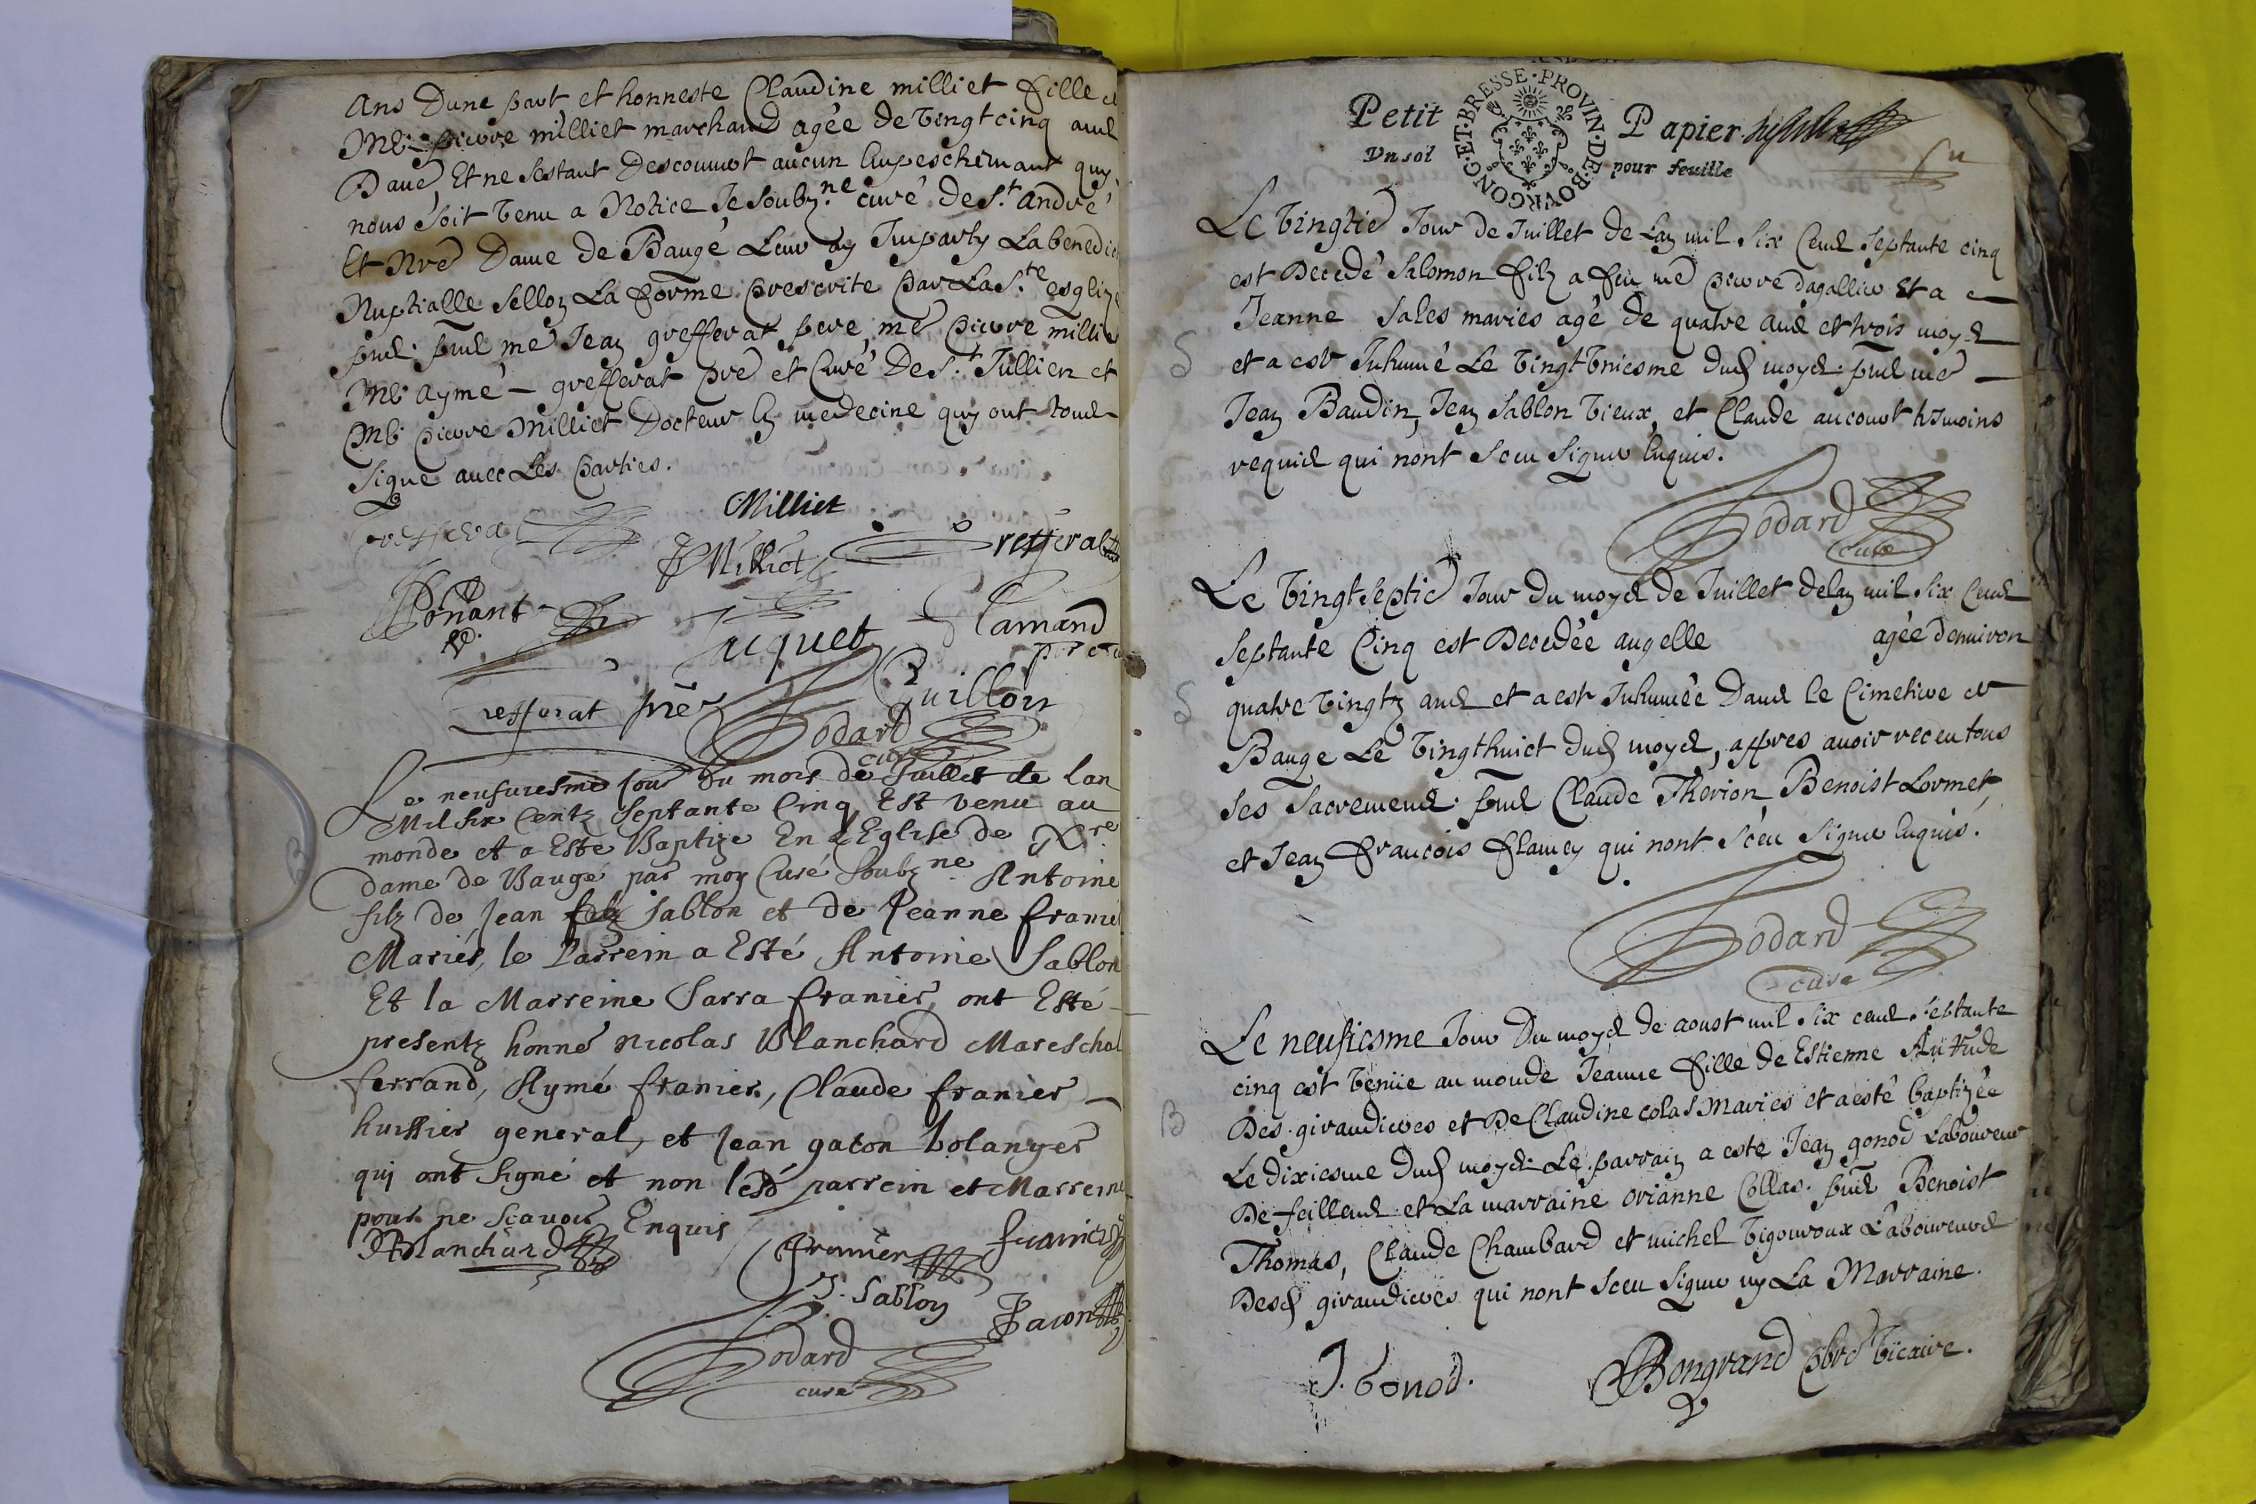 ans dune part et honneste Claudine milliet fille de
Mr. pierre milliet marchand agée de vingt cinq ans
Baugé, Et ne sestant descouuert aucun Empeschemant quy
nous soit venu a Notice Je soubz.né curé de St. andré
Et Nre Dame de Baugé Leur ay Imparty La benedic
Nuptialle sellon La forme prescrite par La Ste esglize
pnt. me Jean grefferat pere, me pierre millie
Mr. aymé — grefferat pre et Curé De St. Jullien et
Mr. pierre Milliet Docteur En medecine quy ont tous
signé auec Les parties.
Milliet
JMilliet
refferat
Ponant
Jacquet
Lamand
Guillon
refferat pre
Godard
curé
Le neufuiesme Jour du mois de Juillet de lan
Mil six Centz septante Cinq, Est venu au
monde et a Esté Baptizé En L'Eglise de Nre
dame de Baugé par moy Curé soubzne Antoine
filz de Jean Sablon et de Jeanne franie
Mariés, le Parrein a Esté Antoine Sablon
Et la Marreine Sarra franier, ont Esté
presentz honne nicolas Blanchard Mareschal
ferrand, Aymé franier, Claude franier
huissier general, et Jean gacon bolanger
qui ont signé et non lesd parrein et Marreine
pour ne sçauoir Enquis
NBlanchard
franier
franier
J. Sablon
Jacon
Godard
curé
PROVIN·DE·BOVRGONG·ET·BRESSE
Petit Papier
Vn sol pour feuille
Le vingtie Jour de Juillet de Lan mil six Cens septante cinq
est Decedé Salomon filz a feu me pierre dagallier Et a
Jeanne Sales mariés agé de quatre ans et trois moys
S
et a esté Inhumé Le vingt vniesme dud moys. pnt me
Jean Baudin, Jean Sablon vieux, et Claude aucourt tesmoins
requis qui nont sceu signer Enquis.
Godard
curé
Le vingt septie Jour du moys de Juillet de lan mil six Cens
septante Cinq est Decedée angelle agée denuiron
S
quatre vingtz ans et a esté Inhumée Dans le Cimetiere de
Baugé Le vingthuict dud moys, appres auoir receu tous
ses sacremens. pnt Claude Thorion, Benoist Lormet,
et Jean François flamey qui nont sceu signer Enquis.
Godard
curé
Le neufiesme Jour Du moys de aoust mil six cens septante
cinq est venüe au monde Jeanne fille de Estienne
B
Des girandieres et De Claudine colas Mariés et a esté baptizée
Le dixiesme dud moys. Le parrain a esté Jean gonod Laboureur
De feillens et La marraine orianne Collas. pnt Benoist
Thomas, Claude Chambard et michel vigouroux Laboureurs
Desd girandieres qui nont sceu signer ny La Marraine.
J. Gonod.
Bongrand pbre vicaire.